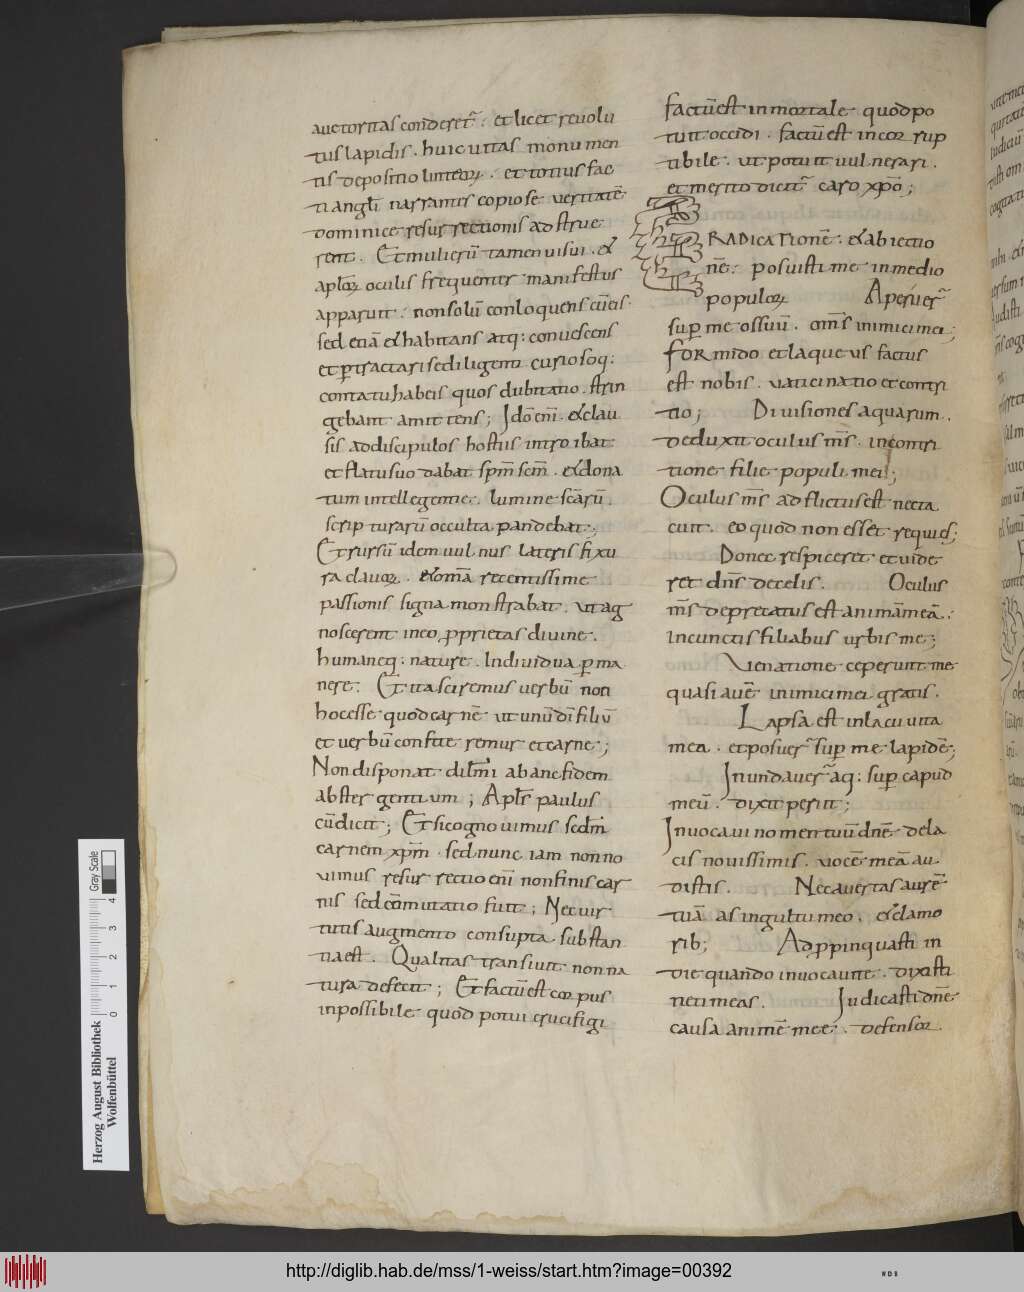 auctoritas conderet᷑. et licet reuolu
tus lapidis. huic uitas monumen
tis depositio linteoꝝ. et totius fac
ti angl̅i narrantis copiose ueritatē
dominice resurrectionis adstrue
rent. Et mulierū tamen uisui. &
apl̅oꝝ oculis frequenter manifestus
apparuit. non solū conloquens cū eis
sed etiā & habitans atq: conuescens
et ꝑtractari se diligenti curiosoq:
contatu habeis quos dubitatio strin
gebat amittens; Ido eni̅. & clau
sis ad discipulos hostiis introibat:
et flatu suo dabat sp̅m sc̅m. & dona
tum intellegentie. lumine sc̅arū.
scripturarū occulta pandebat;
Et rursū idem uulnus lateris fixu
ra clauoꝝ. & om̅a recentissime
passionis signa monstrabat. ut ag
noscerent in eo ꝓprietas diuine.
humaneq: nature. Indiuidua ꝑma
nere. Et ita sciremus uerbū non
hoc esse quod carnē ut unū di̅ filiū
et uerbū confiteremur et carne;
Non disponat dil̅mi ab anc fidem
abster gentium; Apl̅s paulus
cū dicit; Et si cognouimus scd̅m
carnem xp̅m. sed nunc iam non no
uimus resurrectio eni̅ non finis car
nis sed cōmutatio fuit; Nec uir
tutis augmento consupta substan
tia est. Qualitas transiuit non na
tura defecit; Et factū est corpus
inpossibile quod potui crucifigi
factū est inmortale quod po
tuit occidi. factū est incorrup
tibile. ut potuit uulnerari.
et merito dicit᷑ caro xp̅o;
ERADICATIONĒ. & abiectio
nē. posuisti me in medio
populoꝝ Aperuer᷑
suꝑ me ossuū. om̅s inimici mei;
Formido et laqueus factus
est nobis. uaticinatio et contri
tio; Diuisiones aquarum.
deduxit oculus m̅s. in contri
tione filie populi mei;
Oculus m̅s adflictus est nec ta
cuit. eo quod non esset requies;
Donec respiceret et uide
ret dn̅s de celis. Oculus
m̅s depretatus est animā meā.
in cunctis filiabus urbis me;
Uenatione ceperunt me
quasi auē inimici mei gratis.
Lapsa est in lacu uita
mea. et posuer᷑ suꝑ me lapidē;
Inundauer᷑ aq: suꝑ capud
meū. dixit perii;
Inuocaui nomen tuū dn̅e de la
cis nouissimis. uocē meā au
distis. Ne auertas aurē
tuā a singultu meo. & clamo
rib; Adꝓpinquasti in
die quando inuocaui te. dixisti
ne timeas. Iudicasti dn̅e
causa animē mee. defensor.
Gray Scale
0 1 2 3 4
Herzog August Bibliothek
Wolfenbüttel
http://diglib.hab.de/mss/1-weiss/start.htm?image=00392